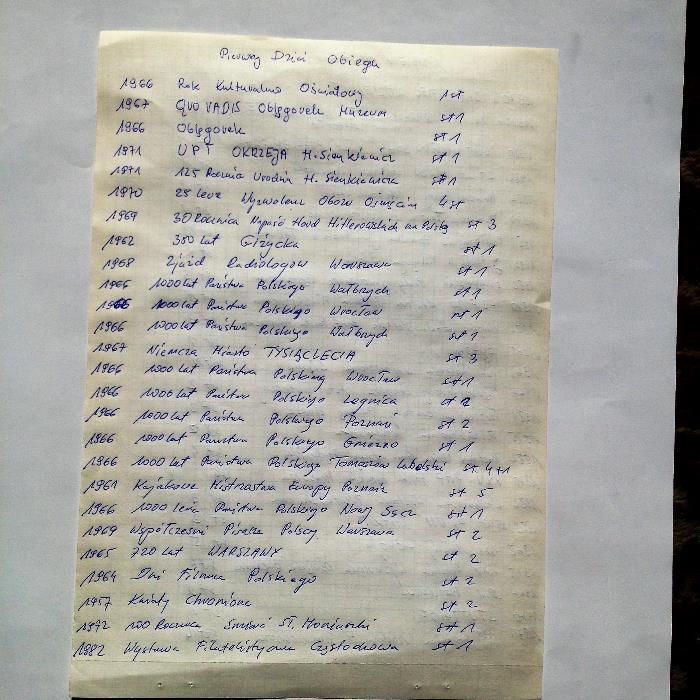 Pierwszy Dzień Obiegu
1966 Rok Kulturalno Oświatowy 1st
1967 QUO VADIS Oblęgorek Muzeum st 1
1966 Oblęgorek st 1
1971 UPT OKRZEJA H. Sienkiewicz st 1
1971 125 Rocznica Urodzin H. Sienkiewicza st 1
1970 25 lecie Wyzwolenia Obozu Oświęcim 4 st
1969 30 Rocznica Napaść Hord Hitlerowskich na Polskę st 3
1962 350 lat Giżycka st 1
1968 Zjazd Radiologów Warszawa st 1
1966 1000 lat Państwa Polskiego Wałbrzych st 1
1966 1000 lat Państwa Polskiego Wrocław st 1
1966 1000 lat Państwa Polskiego Wałbrzych st 1
1967 Niemcza Miasto TYSIĄCLECIA st 3
1966 1000 lat Państwa Polskiego Wrocław st 1
1966 1000 lat Państwa Polskiego Legnica st 2
1966 1000 lat Państwa Polskiego Poznań st 2
1966 1000 lat Państwa Polskiego Gniezno st 1
1966 1000 lat Państwa Polskiego Tomaszów Lubelski st 4+1
1961 Kajakowe Mistrzostwa Europy Poznań st 5
1966 1000 lecia Państwa Polskiego Nowy Sącz st 1
1969 Współcześni Pisarze Polscy Warszawa st 2
1965 720 lat WARSZAWY st 2
1964 Dni Filmu Polskiego st 2
1957 Kwiaty Chronione st 2
1972 100 Rocznica Śmierci St. Moniuszki st 1
1982 Wystawa Filatelistyczna Częstochowa st 1